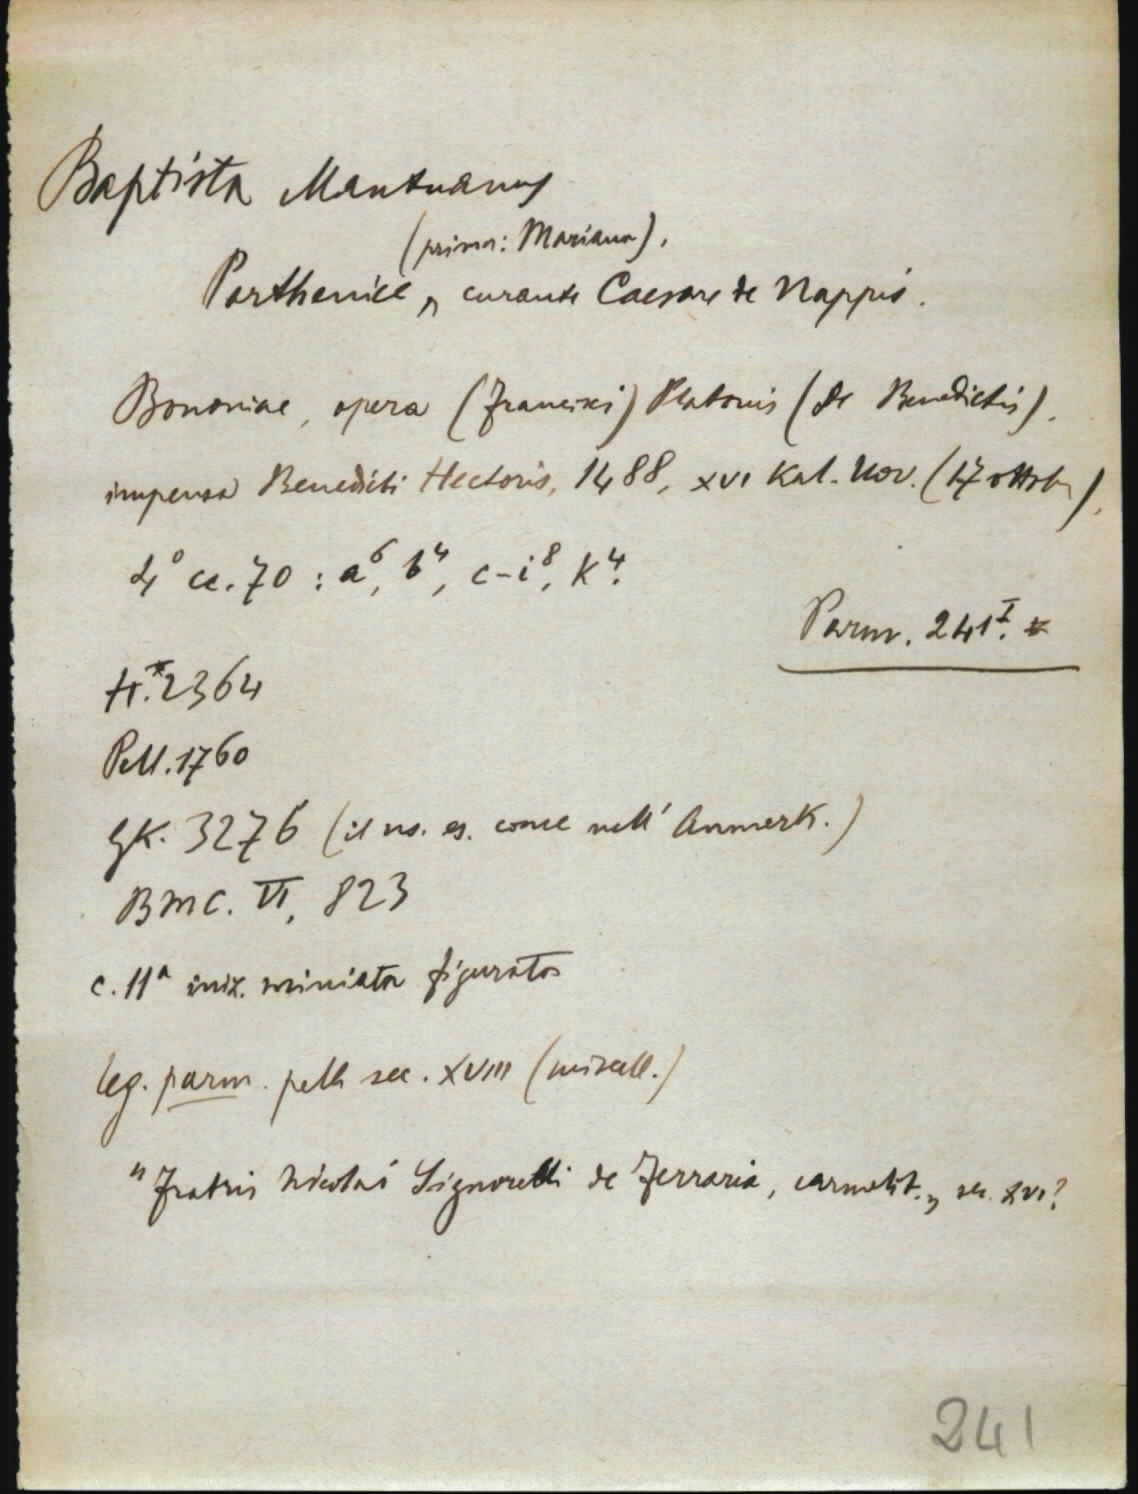 Baptista Mantuanus
(prima: Mariana),
Parthenice, curante Caesare de Nappis.
Bononiae, opera (Francisci) Platonis (de Benedictis),
impensa Benedicti Hectoris, 1488, XVI Kal. Nov. (17 ottobr),
4° cc. 70 : a⁶, b⁴, c-i⁸, K⁴.
Parm. 241 I. *
H.*2364
Pell. 1760
GK. 3276 (il ns. es. come nell' Anmerk.)
BMC. VI, 823
c. 11ª iniz. miniata figurata
leg. parm. pelle sec. XVIII (miscell.)
"Fratris Nicolai Signorelli de Ferraria, carmelit.„ sec. XVI?
241